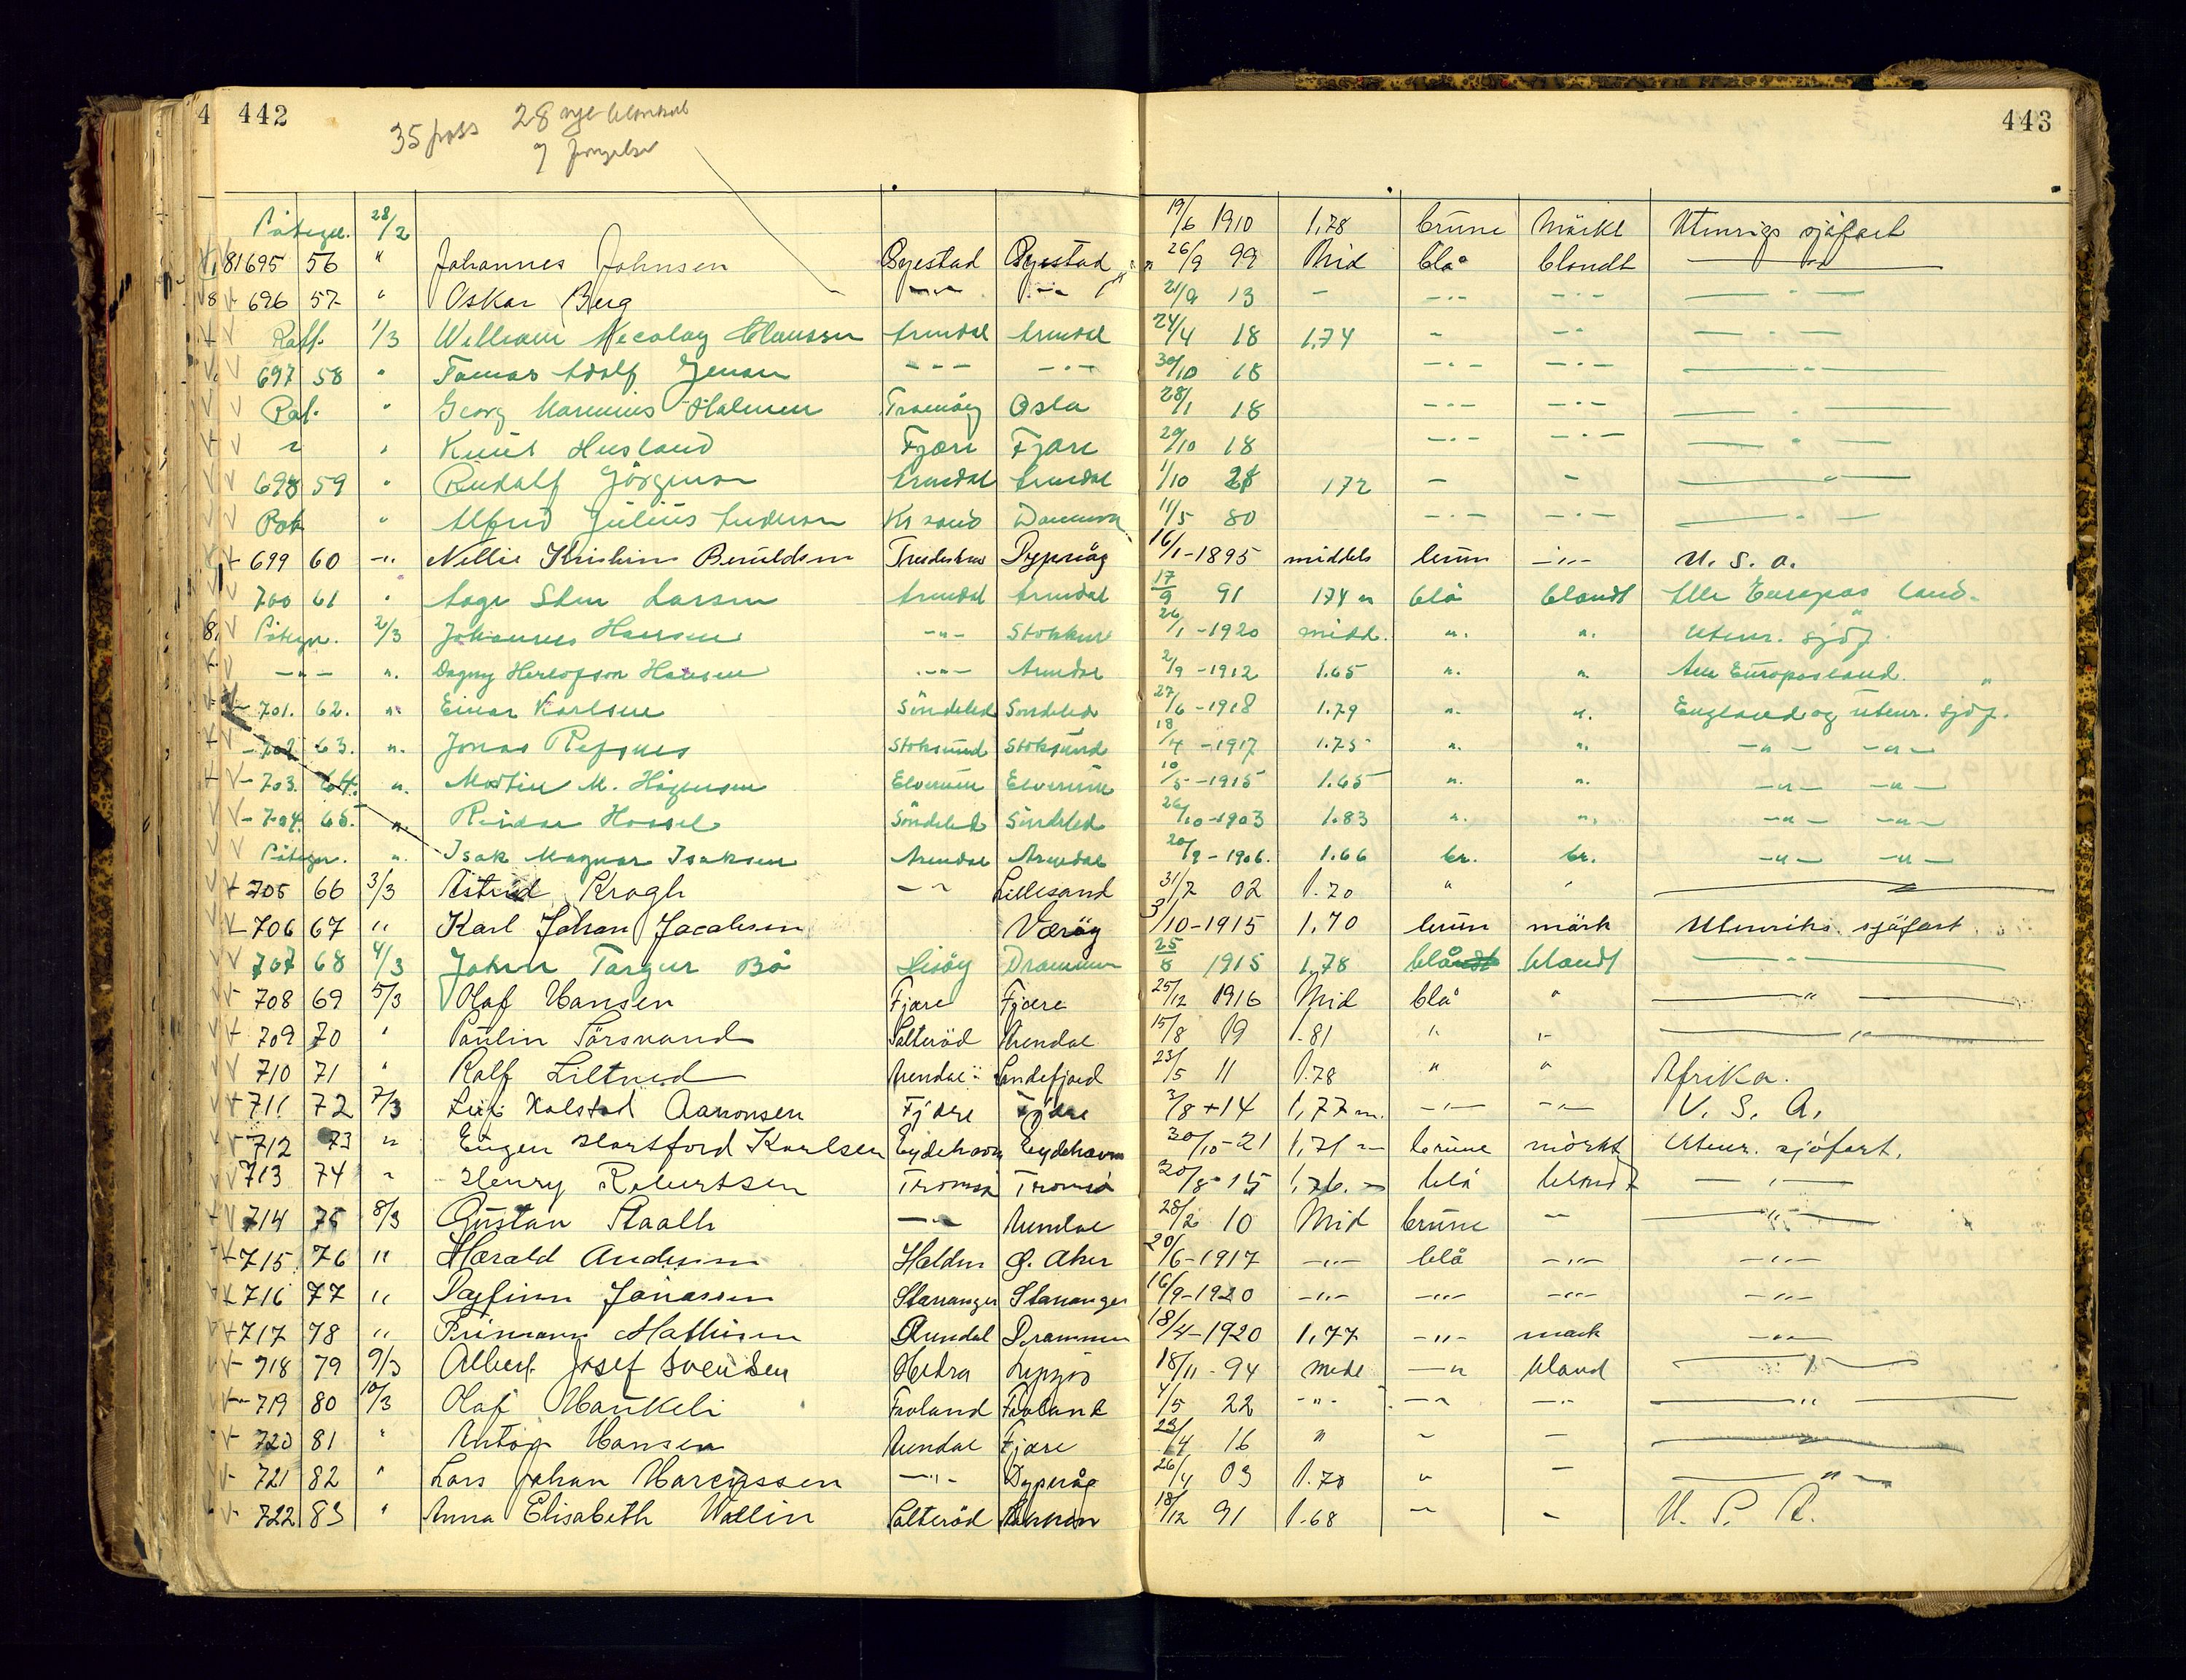 4 442
443
35 pass 28 nye
7
Påtegn. 28/2 19/6 1910 1,78 brune mörkt Utenrigs sjöfart
81695 56 " Johannes Johnsen Öyestad Öyestad 26/9 99 Mid blå blondt —"—
696 57 " Oskar Berg —"— —"— 21/9 13 - —"— —"— —"—
1/3 William Nicolay Clausen Arendal Arendal 24/4 18 1,74 - —"— —"—
697 58 " Tomas Adolf Jensen - - - —"— 30/10 18 —"— —"— —"—
" Georg Marinius Halvorsen Tromöy Oslo 28/1 18 —"— —"— —"—
" " Knut Husland Fjære Fjære 29/10 18 —"— —"— —"—
698 59 " Rudolf Jörgensen Arendal Arendal 1/10 172 - - —"—
" Alfred Julius Andersen Kr sand Danmark 11/5 80 —"— —"— —"—
699 60 —"— Nellie Kristine Berntdsen Tvedestrand Dypvåg 16/1-1895 middels brun —"— U. S. a.
700 61 " Aage Sten Larsen Arendal Arendal 17/9 91 174 m blå blondt Alle Europas land.
Påtegn. 2/3 Johannes Hansen —"— Stokken 26/1-1920 midd. ". ". Utenr. sjöf.
—"— ". Dagny Herlofson Hansen —"— Arendal 2/9-1912 1.65 ". ". Alle Europas land. "
701. 62. ". Einar Karlsen Söndeled Söndeled 27/6-1918 1.79 ". ". England og utenr. sjöf.
702 63. ". Jonas Refsnes Stoksund Stoksund 18/4-1917 1.75 ". ". —"— —"—
703. 64. ". Martin M. Hågensen Elverum Elverum 10/5-1915 1.65 ". ". —"— —"—
704. 65. ". Reidar Hossel Söndeled Söndeled 26/10-1903 1.83 ". ". —"— —"—
Påtegn. ". Isak Magnar Isaksen Arendal Arendal 20/9-1906. 1.66 br. br. —"— —"—
705 66 3/3 Astrid Krogh —"— Lillesand 31/7 02 1.70 " " —"—
706 67 " Karl Johan Jacobsen Værøy 3/10-1915 1,70 brun mörk Utenriks sjöfart
707 68 4/3 Johan Targer Bö Hisöy Drammen 25/8 1915 1,78 blå blondt —"—
708 69 5/3 Olaf Hansen Fjære Fjære 25/12 1916 Mid blå " —"—
709 70 " Paulin Törsvand Salteröd Arendal 15/8 19 1.81 " " —"—
710 71 " Rolf Liltved Arendal Sandefjord 23/5 11 1.78 " " Afrika.
711 72 7/3 Leif Kalstad Aanonsen Fjære Fjære 3/8 14 1,77 m. —"— —"— U. S. A.
712 73 " Eugen Hartford Karlsen Eydehavn Eydehavn 30/10-21 1,71 brune mörkt Utenr. sjöfart.
713 74 " Henry Robertsen Tromsö Tromsö 20/8-15 1,76. blå blondt —"—
714 75 8/3 Gustav Staalh —"— Arendal 28/2 10 Mid brune —"— —"—
715 76 " Harald Andersen Halden Ö. Aker 20/6-1917 —"— blå —"— —"—
716 77 " Dagfinn Jonassen Stavanger Stavanger 16/9-1920 —"— —"— —"— —"—
717 78 " Primann Mathisen Arendal Drammen 18/4-1920 1,77 —"— mörk —"—
718 79 9/3 Albert Josef Svendsen Hidra 18/11-94 midd —"— blond —"—
719 80 10/3 Olaf Haukeli Froland Froland 4/5 22 —"— —"— —"— —"—
720 81 " Anton Hansen Arendal Fjære 23/4 16 " " — —"—
721 82 " Lars Johan Marcussen —"— Dypvåg 26/4 03 1.70 " — —"—
722 83 " Anna Elisabeth Wallin Salteröd 18/12 91 1.68 " - U. S. A.